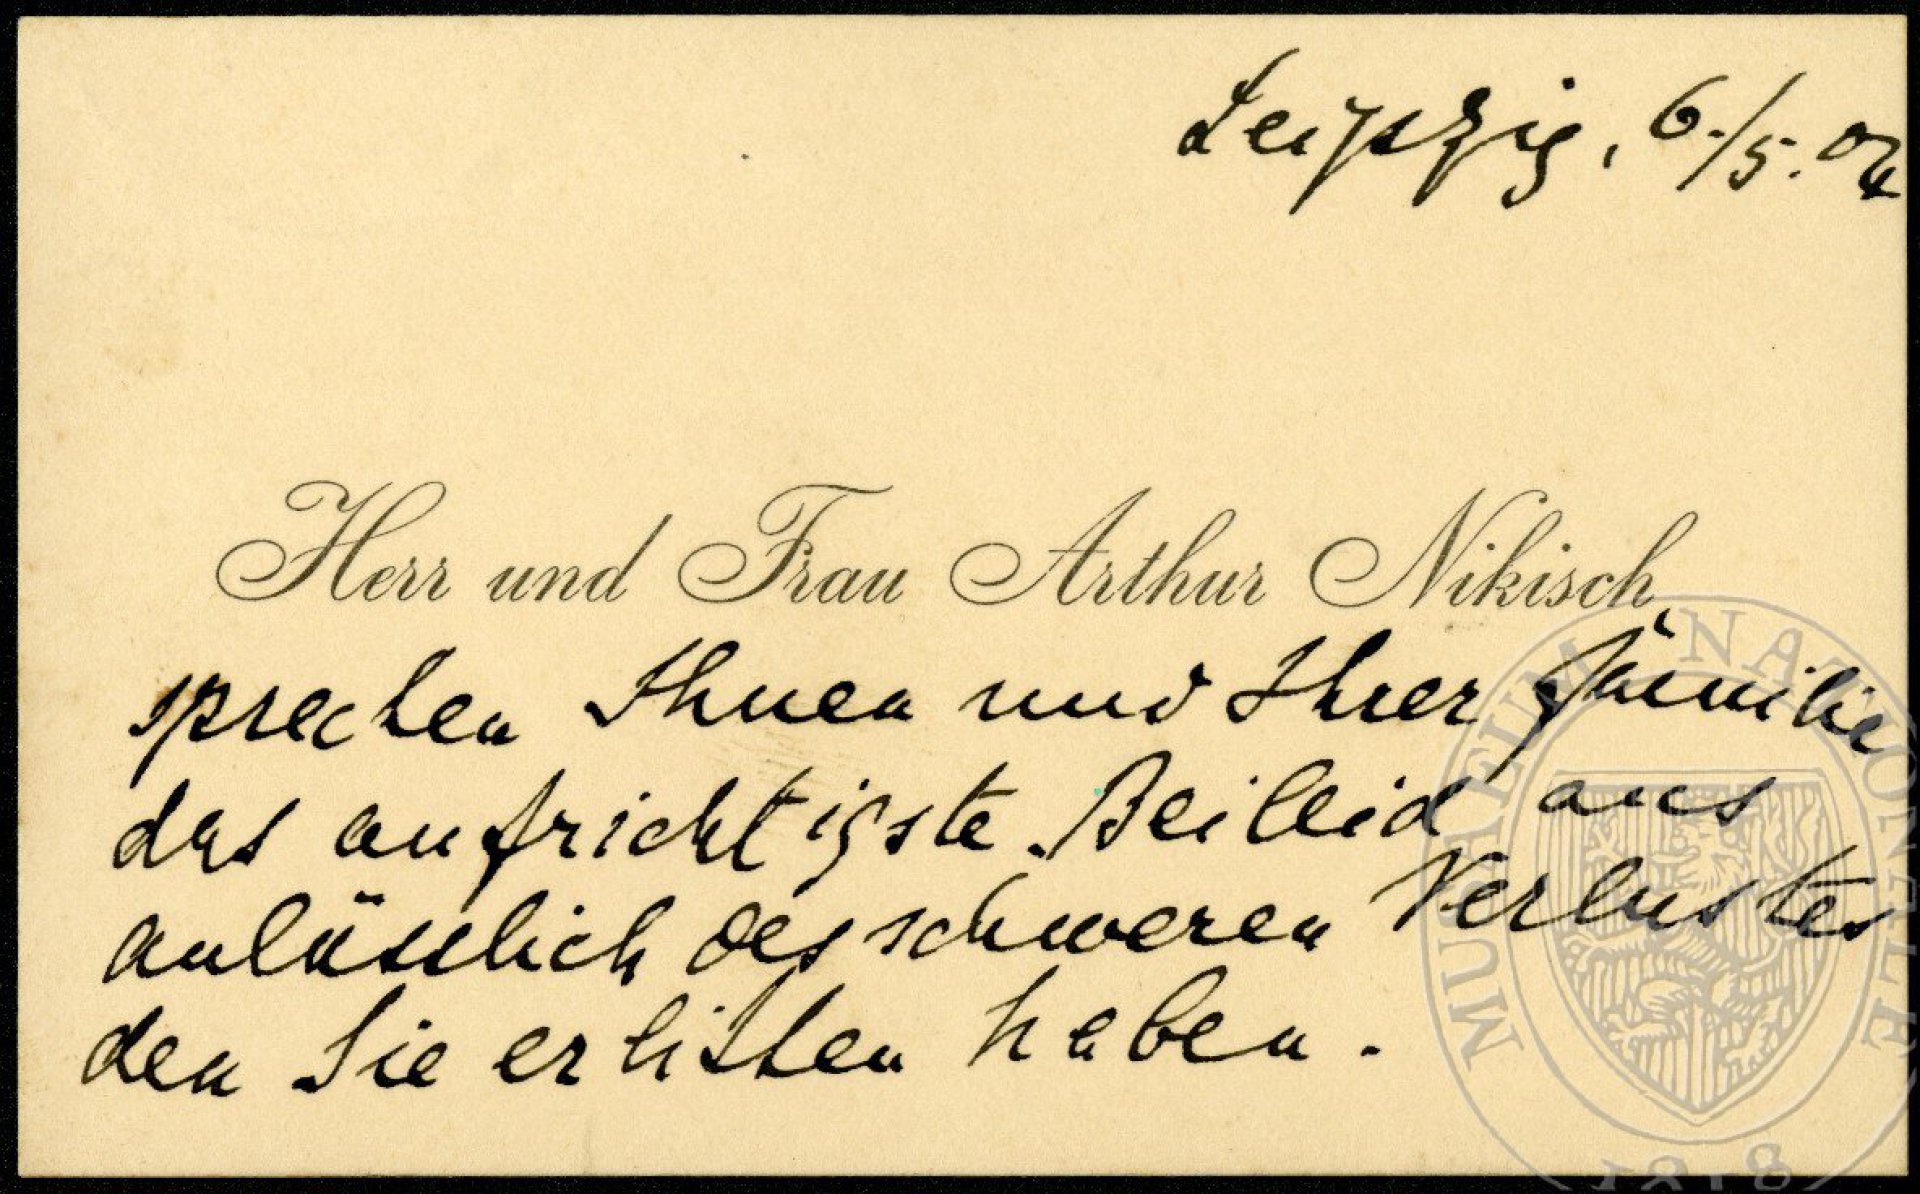 Leipzig, 6./5. 04
Herr und Frau Arthur Nikisch
sprechen Ihnen und Ihrer Familie
das aufrichtigste Beileid aus
anlässlich des schweren Verlustes
den Sie erlitten haben.
MUSEUM NATIONALE
1818